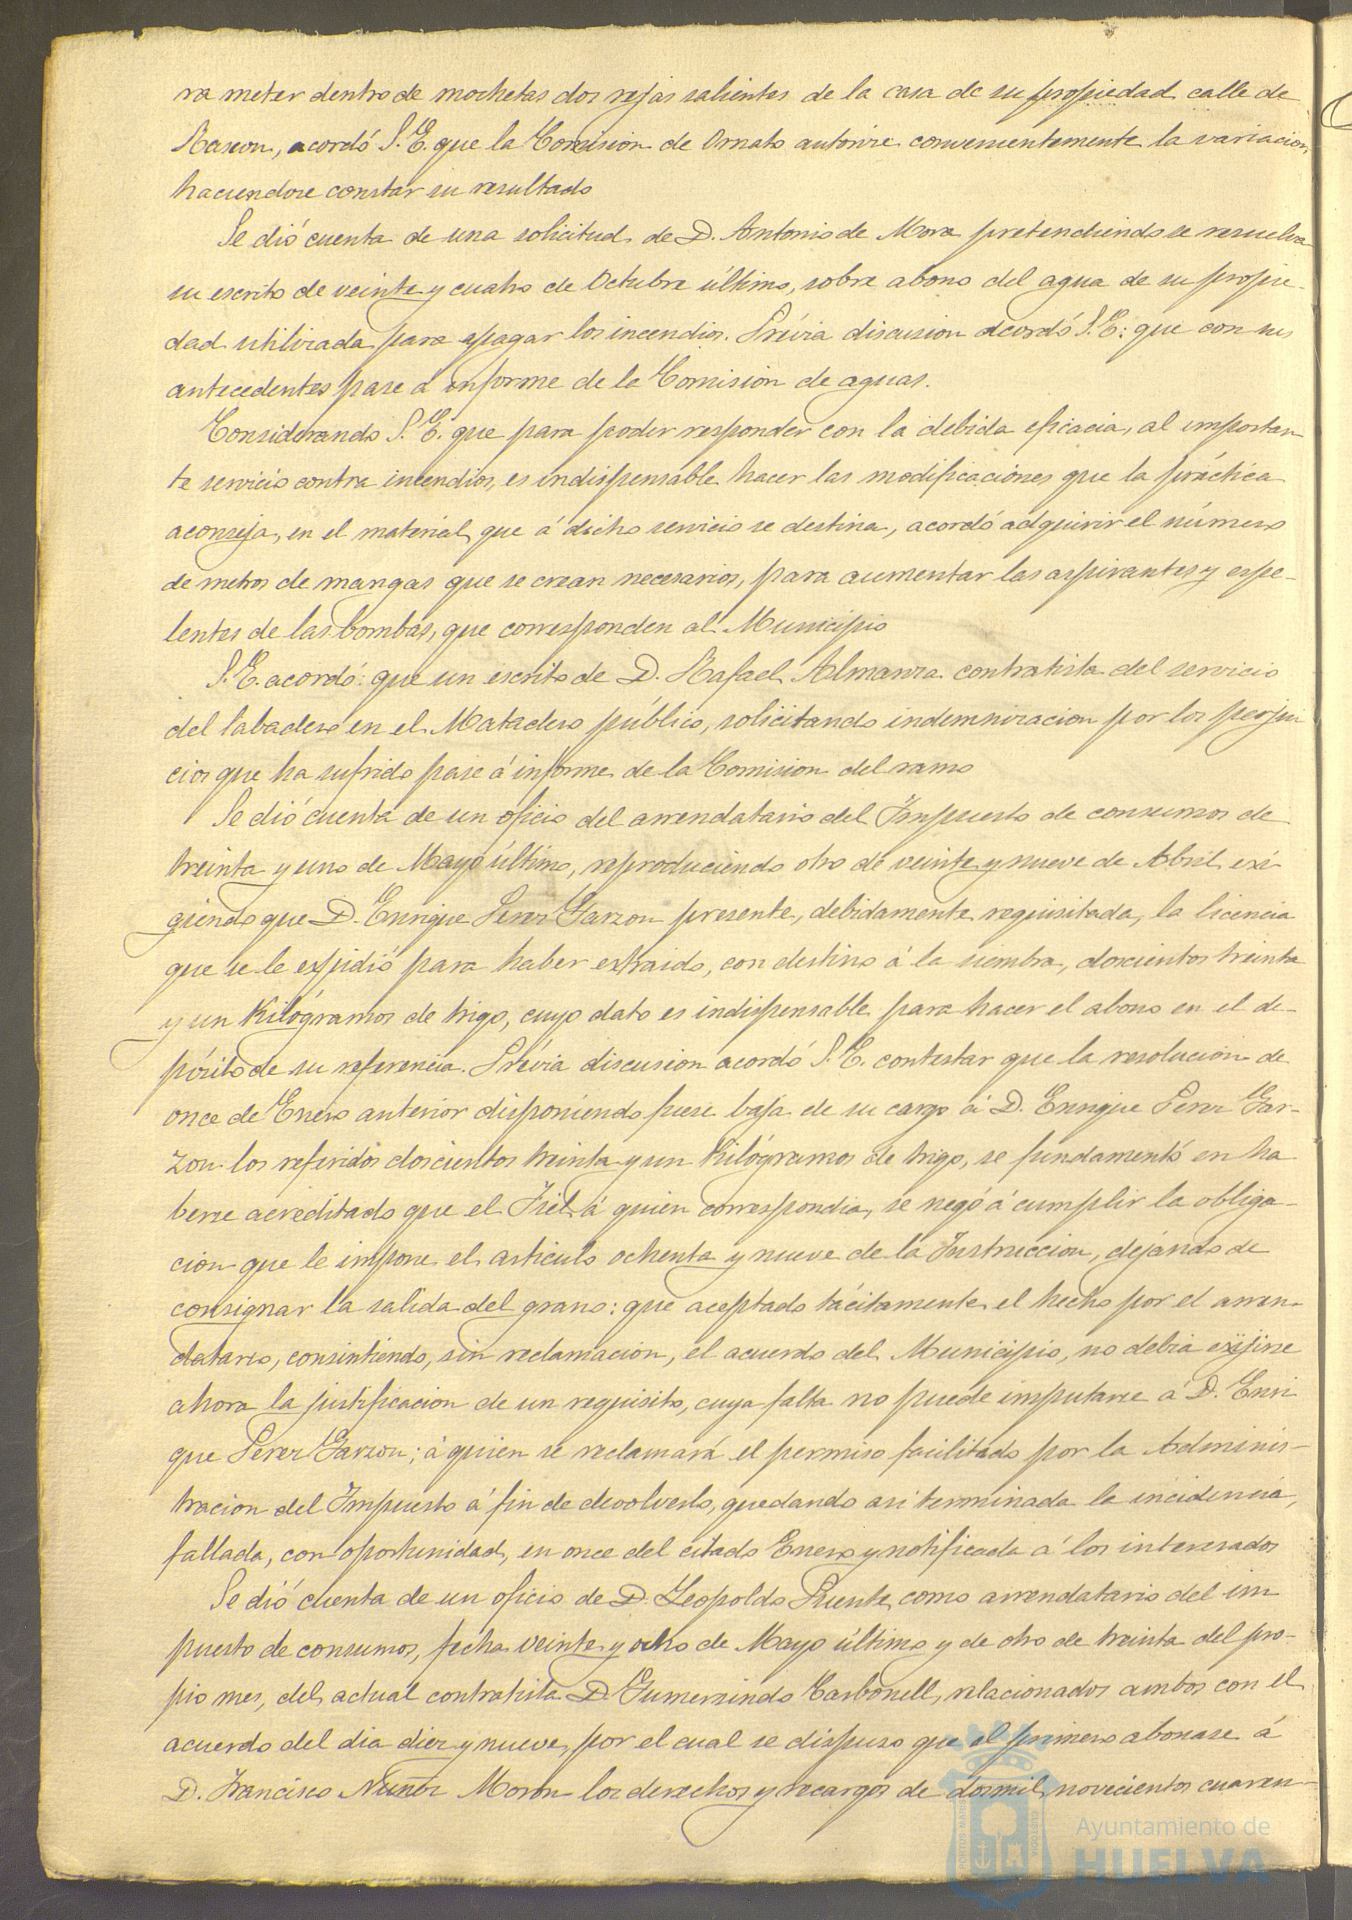 ra meter dentro de mochetas dos rejas salientes de la casa de su propiedad calle de
Rascon, acordó S. E. que la Comision de Ornato autorice convenientemente la variacion,
haciendose constar su resultado
Se dió cuenta de una solicitud de D. Antonio de Mora pretendiendo se resuelva
su escrito de veinte y cuatro de Octubre último, sobre abono del agua de su propie-
dad utilizada para apagar los incendios. Prévia discusion acordó S. E: que con sus
antecedentes pase á informe de la Comision de aguas.
Considerando S. E. que para poder responder con la debida eficacia, al importan
te servicio contra incendios, es indispensable hacer las modificaciones que la práctica
aconseja, en el material, que á dicho servicio se destina, acordó adquirir el número
de metros de mangas que se crean necesarios, para aumentar las aspirantes y espe-
lentes de las bombas, que corresponden al Municipio
S. E. acordó: que un escrito de D. Rafael Almanza contratista del servicio
del labadero en el Matadero público, solicitando indemnizacion por los perjui
cios que ha sufrido pase á informe de la Comision del ramo
Se dió cuenta de un oficio del arrendatario del Impuesto de consumos de
treinta y uno de Mayo último, reproduciendo otro de veinte y nueve de Abril exi-
giendo que D. Enrique Perez Garzon presente, debidamente requisitada, la licencia
que se le expidió para haber extraido, con destino á la siembra, doscientos treinta
y un Kilógramos de trigo, cuyo dato es indispensable para hacer el abono en el de-
pósito de su referencia. Prévia discusion acordó S. E. contestar que la resolucion de
once de Enero anterior disponiendo fuese baja de su cargo á D. Enrique Perez Gar-
zon los referidos doscientos treinta y un Kilógramos de trigo, se fundamentó en ha
berse acreditado que el Fiel á quien correspondia, se negó á cumplir la obliga-
cion que le impone el articulo ochenta y nueve de la Instruccion, dejando de
consignar la salida del grano: que aceptado tácitamente el hecho por el arren-
datario, consintiendo, sin reclamacion, el acuerdo del Municipio, no debia exijirse
ahora la justificacion de un requisito, cuya falta no puede imputarse á D. Enri
que Perez Garzon; á quien se reclamará el permiso facilitado por la Adminis-
tracion del Impuesto á fin de devolverlo, quedando asi terminada la incidencia,
fallada, con oportunidad, en once del citado Enero y notificada á los interesados
Se dió cuenta de un oficio de D. Leopoldo Puente, como arrendatario del im
puesto de consumos, fecha veinte y ocho de Mayo último y de otro de treinta del pro-
pio mes, del actual contratista D. Gumersindo Carbonell, relacionados ambos con el
acuerdo del dia diez y nueve, por el cual se dispuso que el primero abonase á
D. Francisco Nuñez Moron los derechos y recargos de dosmil novecientos cuaren-
Ayuntamiento de
HUELVA